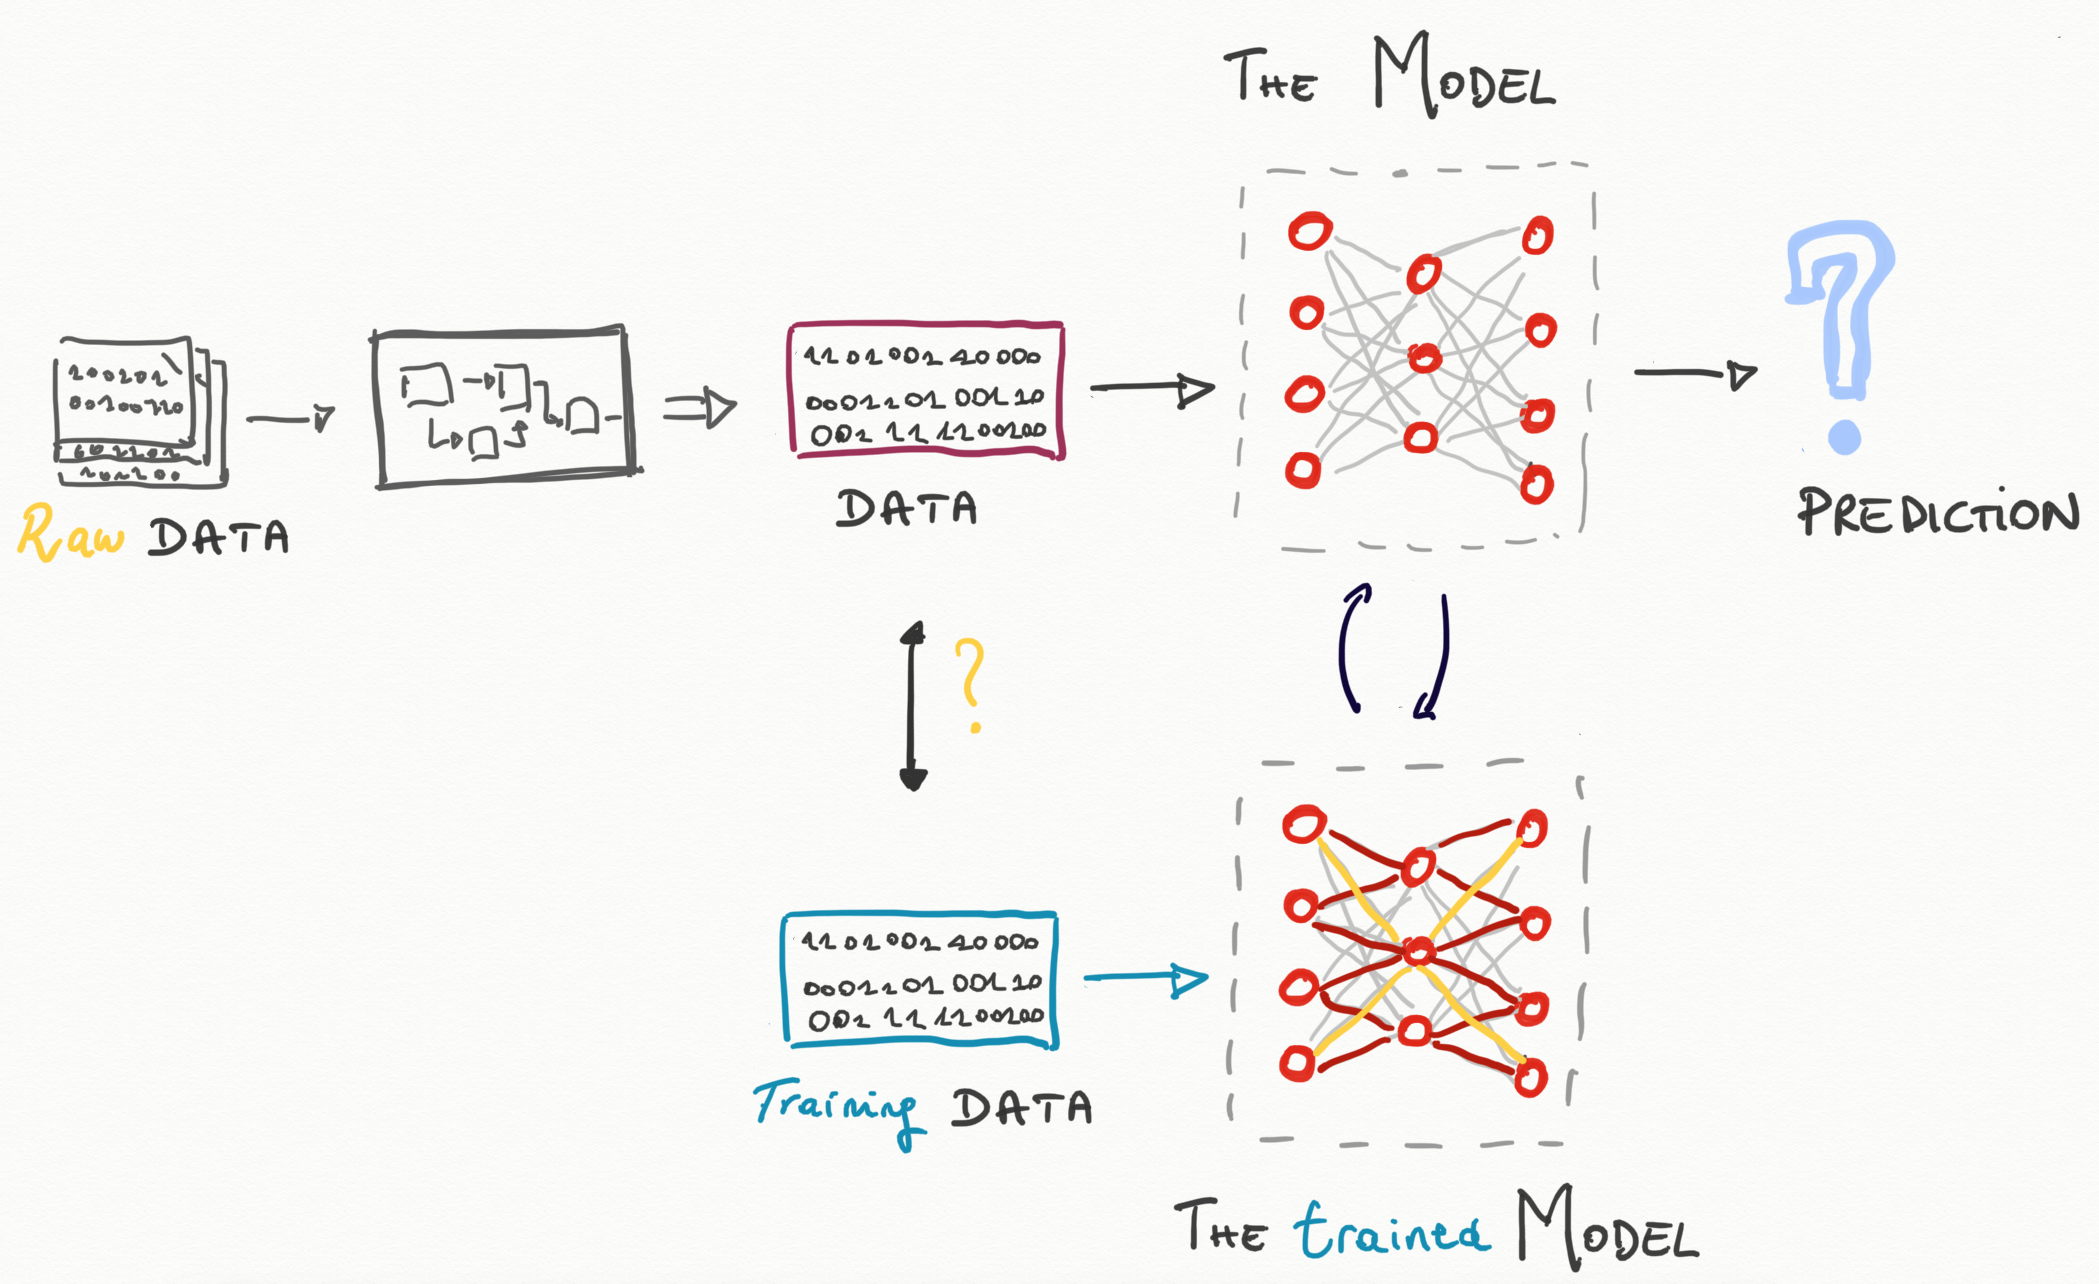 THE MODEL
100101
00100110
601101
101100
11010010 10000
00011101 00110
001 11 1100100
Raw DATA
DATA
?
PREDICTION
?
11010010 10000
00011101 00110
001 11 1100100
Training DATA
THE trained MODEL